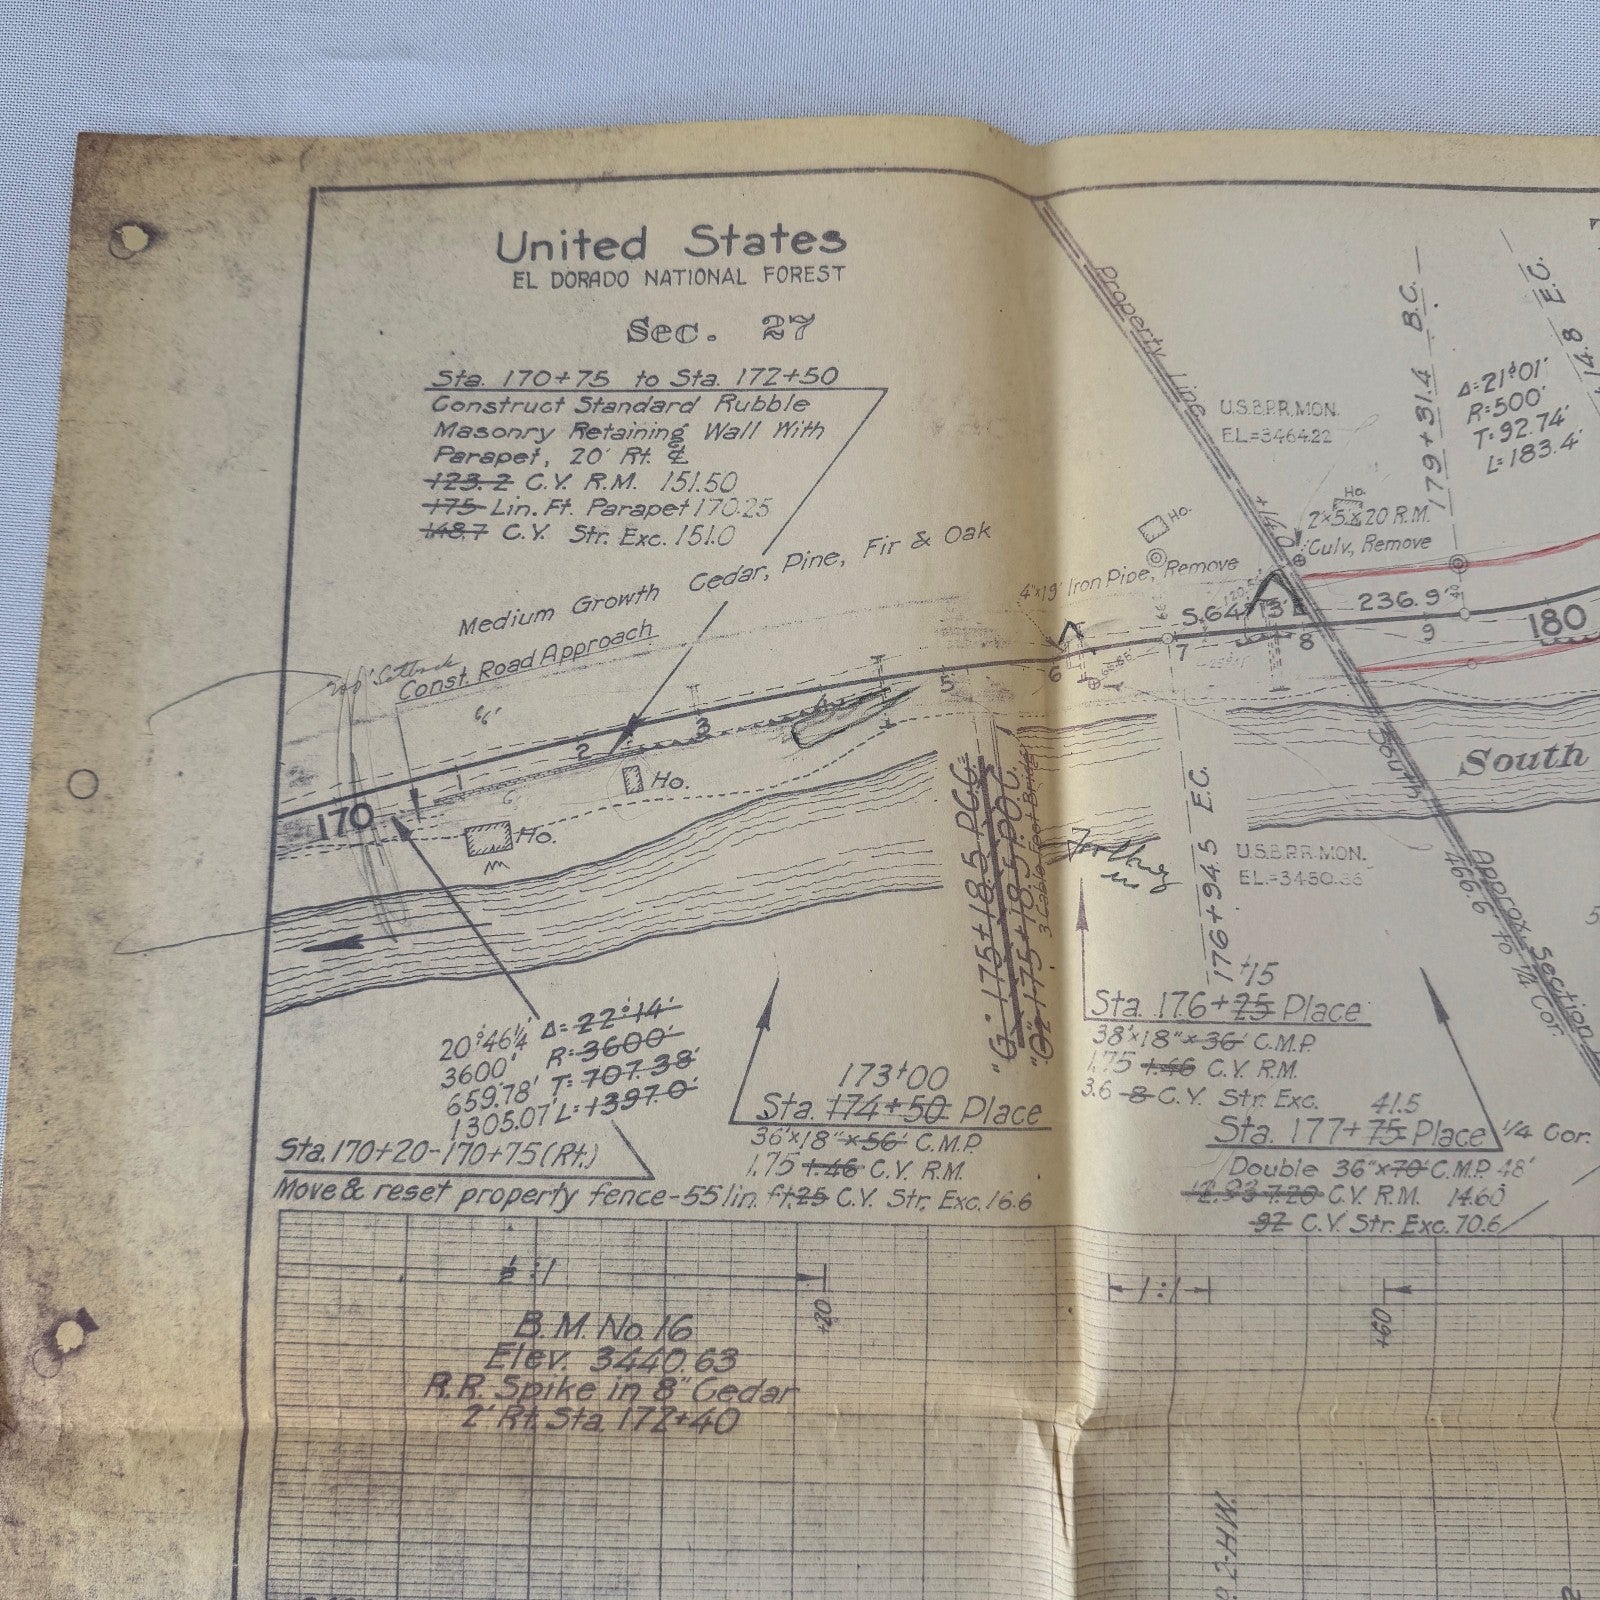 United States
EL DORADO NATIONAL FOREST
Sec. 27
Sta. 170+75 to Sta. 172+50
Construct Standard Rubble
Masonry Retaining Wall With
Parapet, 20' Rt. ℄
123.2 C.Y. R.M. 151.50
175 Lin. Ft. Parapet 170.25
148.7 C.Y. Str. Exc. 151.0
Medium Growth Cedar, Pine, Fir & Oak
Const. Road Approach
66'
Property Line
U.S.B.P.R. MON.
EL.=3464.22
179+31.4 B.C.
E.C.
Δ=21°01'
R=500'
T=92.74'
L=183.4'
Ho.
Ho.
2×5×20 R.M.
Culv, Remove
+14.0
4"×19' Iron Pipe, Remove
236.9'
170
1
2
3
4
5
6
7
8
9
180
Ho.
Ho.
South
"G" 175+18.5 P.O.C.
175+18.5 P.O.C.
3 Cable Foot Bridge
176+94.5 E.C.
U.S.B.P.R. MON.
Approx. Section
466.6' to 1/4 Cor.
20°46¼' Δ=22°14'
3600' R=3600'
659.78' T=707.38'
1305.07' L=1397.0'
Sta. 170+20-170+75 (Rt.)
Move & reset property fence-55 lin. ft.
173+00
Sta. 174+50 Place
36'×18"×56' C.M.P.
1.75 1.46 C.Y. R.M.
25 C.Y. Str. Exc. 16.6
+15
Sta. 176+25 Place
38'×18"×36' C.M.P.
1.75 1.46 C.Y. R.M.
3.6 8 C.Y. Str. Exc.
41.5
Sta. 177+75 Place
1/4 Cor.
Double 36"×70' C.M.P. 48'
12.93 7.20 C.Y. R.M. 14.60
92 C.Y. Str. Exc. 70.6
½:1
+20
1:1
+60
B.M. No. 16
Elev. 3440.63
R.R. Spike in 8" Cedar
2' Rt. Sta. 172+40
2-H.W.